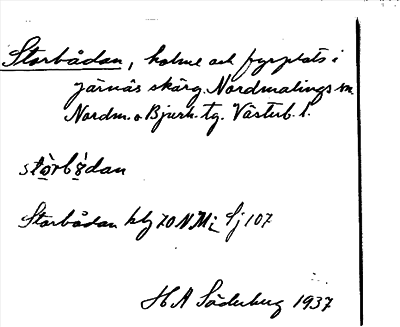 Storbådan, holme och fyrplats i
Järnäs skärg. Nordmalings sn
Nordm. o Bjurh. tg. Västerb. l.
stòrbådan
Storbådan blz 70 NMi Sj 107
H A Söderberg 1937